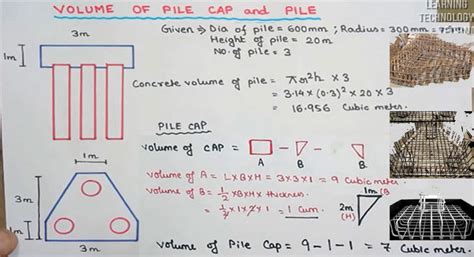 VOLUME OF PILE CAP and PILE
LEARNING
TECHNOLOGY
3m
1m
Given ⇒ Dia of pile = 600mm ; Radius = 300mm =
Height of pile = 20m
No. of pile = 3
Concrete volume of pile = πr²h × 3
= 3.14 × (0.3)² × 20 × 3
= 16.956 Cubic meter.
PILE CAP
volume of CAP = - -
A B B
1m
3m
3m
volume of A = L×B×H = 3×3×1 = 9 Cubic meter
volume of B = ½ × B × H × thickness.
= ½ × 1 × 2 × 1 = 1 Cum.
1m (B
2m
(H)
volume of Pile Cap = 9 - 1 - 1 = 7 Cubic meter.